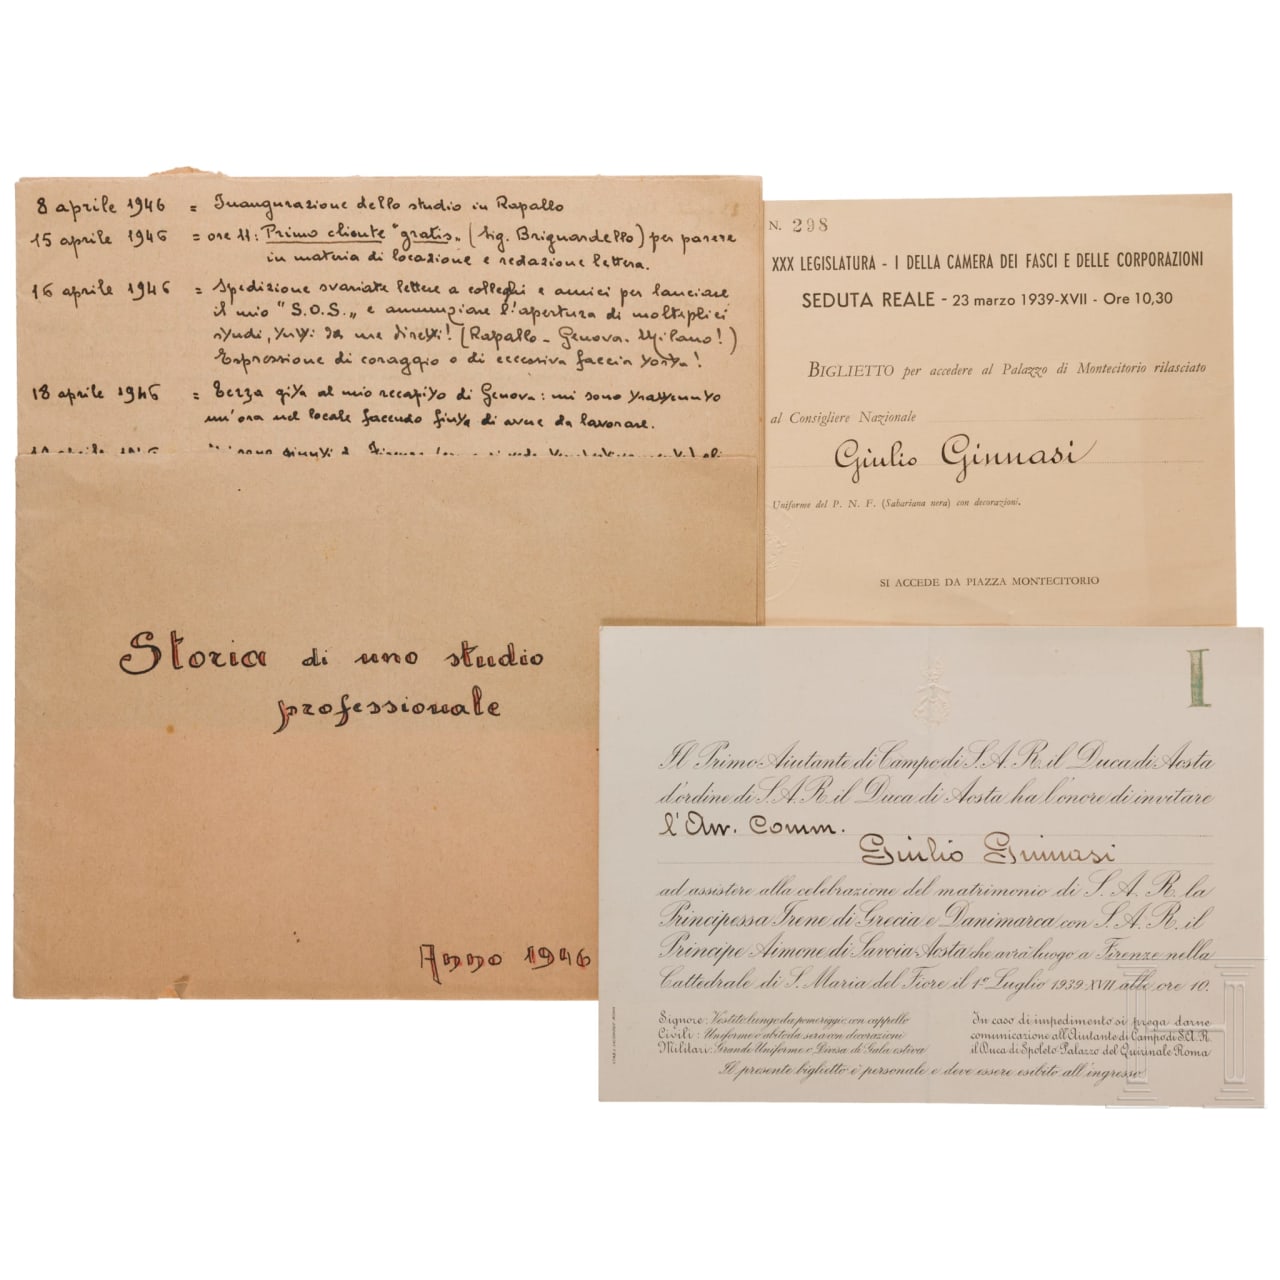 8 aprile 1946 = Inaugurazione dello studio in Rapallo
15 aprile 1946 = ore 11: Primo cliente "gratis„ (Sig. Brignardello) per parere
in materia di locazione e redazione lettera.
16 aprile 1946 = Spedizione svariate lettere a colleghi e amici per lanciare
il mio "S.O.S.„ e annunziare l'apertura di molteplici
studi, tutti da me diretti! (Rapallo - Genova - Milano!)
Espressione di coraggio o di eccessiva faccia tosta!
18 aprile 1946 = Terza gita al mio recapito di Genova: mi sono trattenuto
un'ora nel locale facendo finta di avere da lavorare.
Storia di uno studio
professionale
Anno 1946
N. 298
XXX LEGISLATURA - I DELLA CAMERA DEI FASCI E DELLE CORPORAZIONI
SEDUTA REALE - 23 marzo 1939-XVII - Ore 10,30
BIGLIETTO per accedere al Palazzo di Montecitorio rilasciato
al Consigliere Nazionale
Giulio Ginnasi
Uniforme del P. N. F. (Sahariana nera) con decorazioni.
SI ACCEDE DA PIAZZA MONTECITORIO
I
Il Primo Aiutante di Campo di S. A. R. il Duca di Aosta
d'ordine di S. A. R. il Duca di Aosta ha l'onore di invitare
l'Avv. Comm.
Giulio Ginnasi
ad assistere alla celebrazione del matrimonio di S. A. R. la
Principessa Irene di Grecia e Danimarca con S. A. R. il
Principe Aimone di Savoia Aosta che avrà luogo a Firenze nella
Cattedrale di S. Maria del Fiore il 1º Luglio 1939-XVII alle ore 10.
Signore: Vestito lungo da pomeriggio, con cappello
Civili: Uniforme o abito da sera con decorazioni
Militari: Grande Uniforme o Divisa di Gala estiva
In caso di impedimento si prega darne
comunicazione all'Aiutante di Campo di S.A.R.
il Duca di Spoleto Palazzo del Quirinale Roma
Il presente biglietto è personale e deve essere esibito all'ingresso